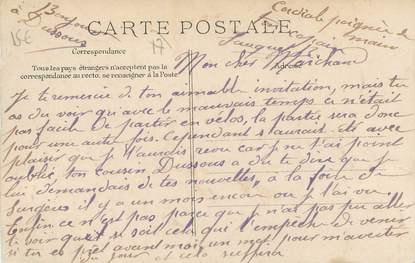 Bonjour
à Dussous
15€
17
CARTE POSTALE
Cordiale poignée de
main
Correspondance
Tous les pays étrangers n'acceptent pas la
correspondance au recto, se renseigner à la Poste.
Mon cher
Je te remercie de ton aimable invitation, mais tu
as du voir qu'avec le mauvais temps ce n'était
pas facile de partir en vélos, la partie sera donc
pour une autre fois. Cependant s'aurait été avec
plaisir que je t'aurais revu car je ne t'ai point
oublié, ton cousin Dussous a du te dire que je
lui demandais de tes nouvelles, à la foire de
Surgères il y a un mois encore ou je l'ai vu.
Enfin ce n'est pas parce que je n'ai pas pu aller
te voir qu'il se soit cela qui t'empêche de venir
si tu es prêt avant moi, un mot pour m'avertir
du jour et cela suffira